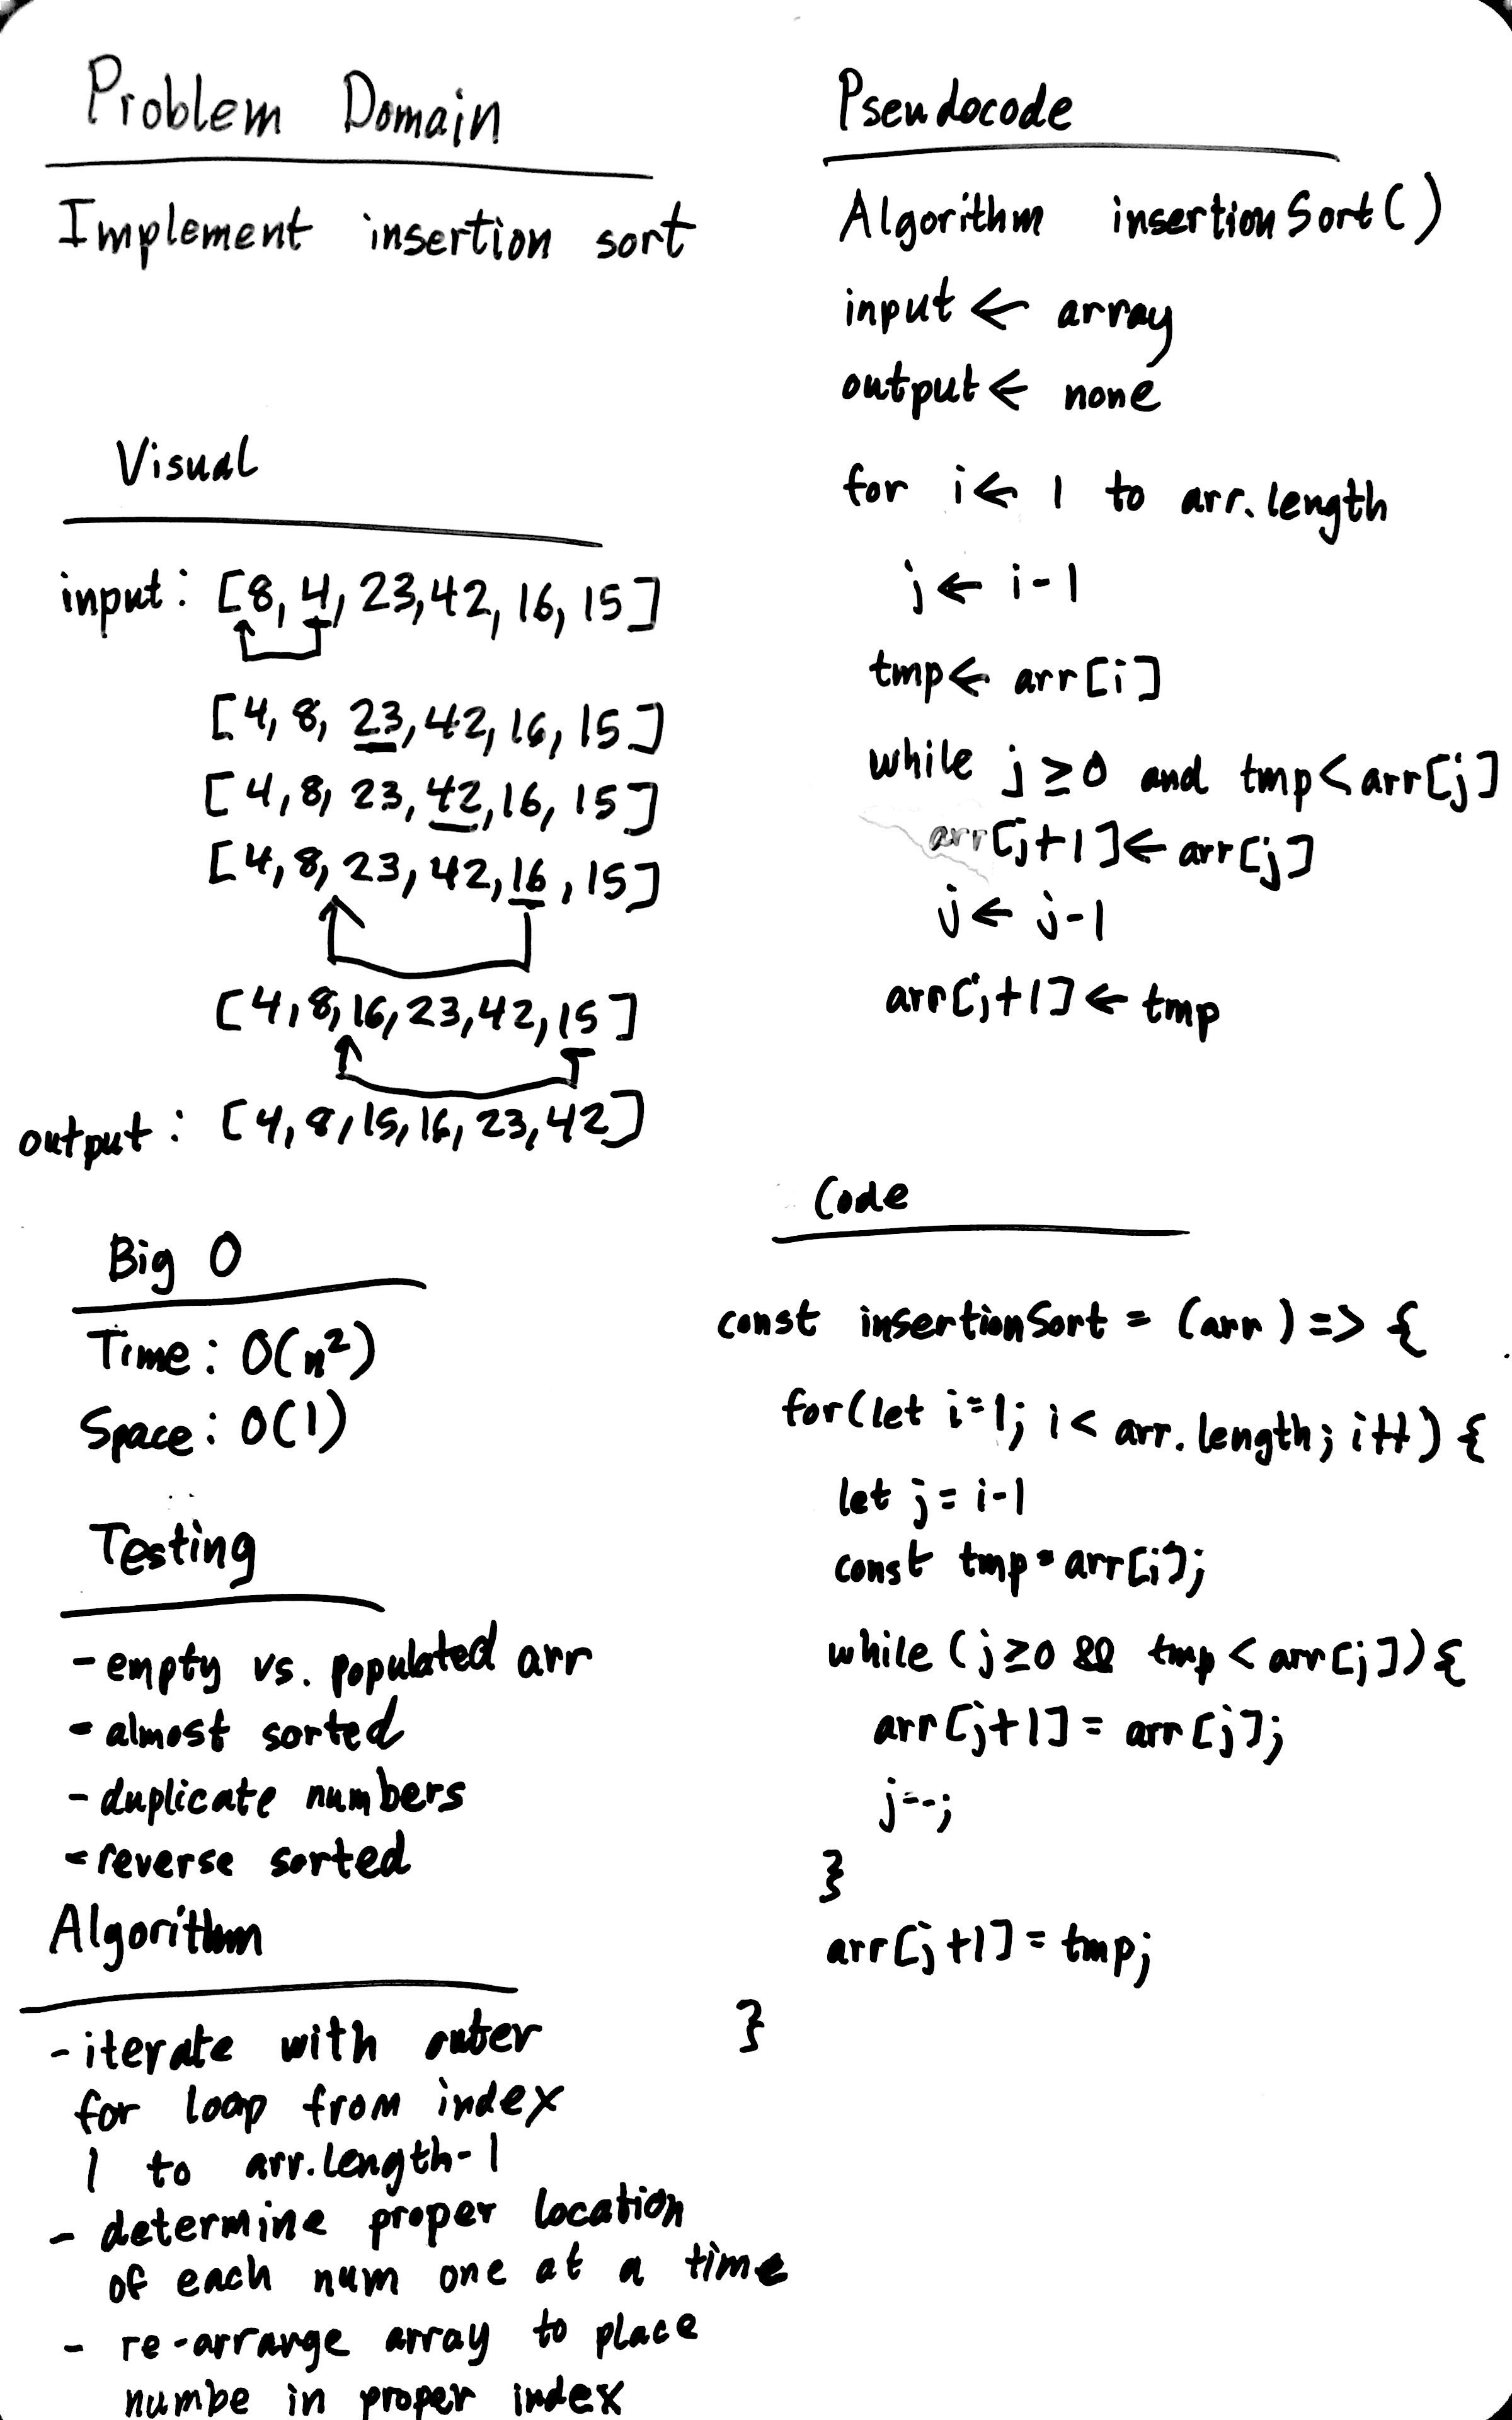 Problem Domain
Implement insertion sort
Visual
input: [8, 4, 23, 42, 16, 15]
[4, 8, 23, 42, 16, 15]
[4, 8, 23, 42, 16, 15]
[4, 8, 23, 42, 16, 15]
[4, 8, 16, 23, 42, 15]
output: [4, 8, 15, 16, 23, 42]
Big O
Time: O(n²)
Space: O(1)
Testing
- empty vs. populated arr
- almost sorted
- duplicate numbers
- reverse sorted
Algorithm
- iterate with outer
for loop from index
1 to arr.length-1
- determine proper location
of each num one at a time
- re-arrange array to place
numbe in proper index
Pseudocode
Algorithm insertionSort()
input ← array
output ← none
for i ← 1 to arr.length
j ← i-1
tmp ← arr[i]
while j ≥ 0 and tmp < arr[j]
arr[j+1] ← arr[j]
j ← j-1
arr[j+1] ← tmp
Code
const insertionSort = (arr) => {
for(let i=1; i < arr.length; i++) {
let j = i-1
const tmp = arr[i];
while (j≥0 && tmp < arr[j]){
arr[j+1] = arr[j];
j--;
}
arr[j+1] = tmp;
}